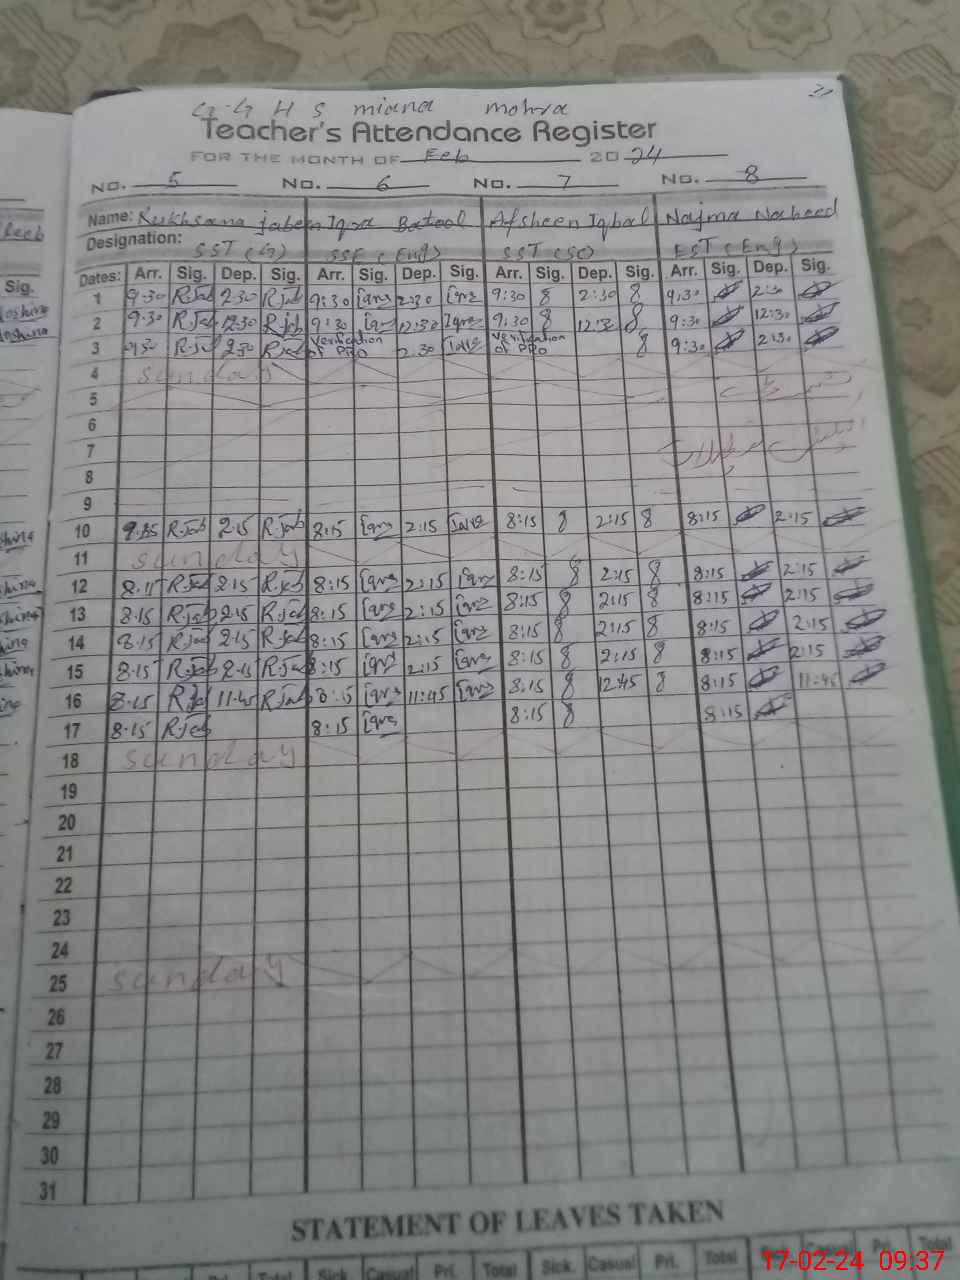 G.G H S miana mohra
Teacher's Attendance Register
FOR THE MONTH OF Feb 2024
No. 5 No. 6 No. 7 No. 8
Name: Rukhsana jabeen Iqra Batool Afsheen Iqbal Najma Naheed
Designation: SST (G) SSE (Eng) SST (SC) EST (Eng)
Dates: Arr. Sig. Dep. Sig. Arr. Sig. Dep. Sig. Arr. Sig. Dep. Sig. Arr. Sig. Dep. Sig.
1 9:30 R.Jab 2:30 R.Jab 9:30 Iqra 2:30 Iqra 9:30 2:30 9:30 2:30
2 9:30 R.Jab 12:30 R.Jab 9:30 Iqra 12:30 Iqra 9:30 12:30 9:30 12:30
3 9:30 R.Jab 2:30 R.Jab Verification of PRO 2:30 Iqra Verification of PRO 9:30 2:30
4 sunday
5
6
7
8
9
10 R.Jab 2:15 R.Jab 8:15 Iqra 2:15 Iqra 8:15 2:15 8:15 2:15
11 sunday
12 8:15 R.Jab 2:15 R.Jab 8:15 Iqra 2:15 Iqra 8:15 2:15 8:15 2:15
13 8:15 R.Jab 2:15 R.Jab 8:15 Iqra 2:15 Iqra 8:15 2:15 8:15 2:15
14 8:15 R.Jab 2:15 R.Jab 8:15 Iqra 2:15 Iqra 8:15 2:15 8:15 2:15
15 8:15 R.Jab 2:15 R.Jab 8:15 Iqra 2:15 Iqra 8:15 2:15 8:15 2:15
16 8:15 R.Jab 11:45 R.Jab 8:15 Iqra 11:45 Iqra 8:15 12:45 8:15 11:45
17 8:15 R.Jab 8:15 Iqra 8:15 8:15
18 sunday
19
20
21
22
23
24
25 sunday
26
27
28
29
30
31
STATEMENT OF LEAVES TAKEN
Total Sick Casual Pri. Total Sick. Casual Pri. Total Sick Casual Pri. Total
17-02-24 09:37